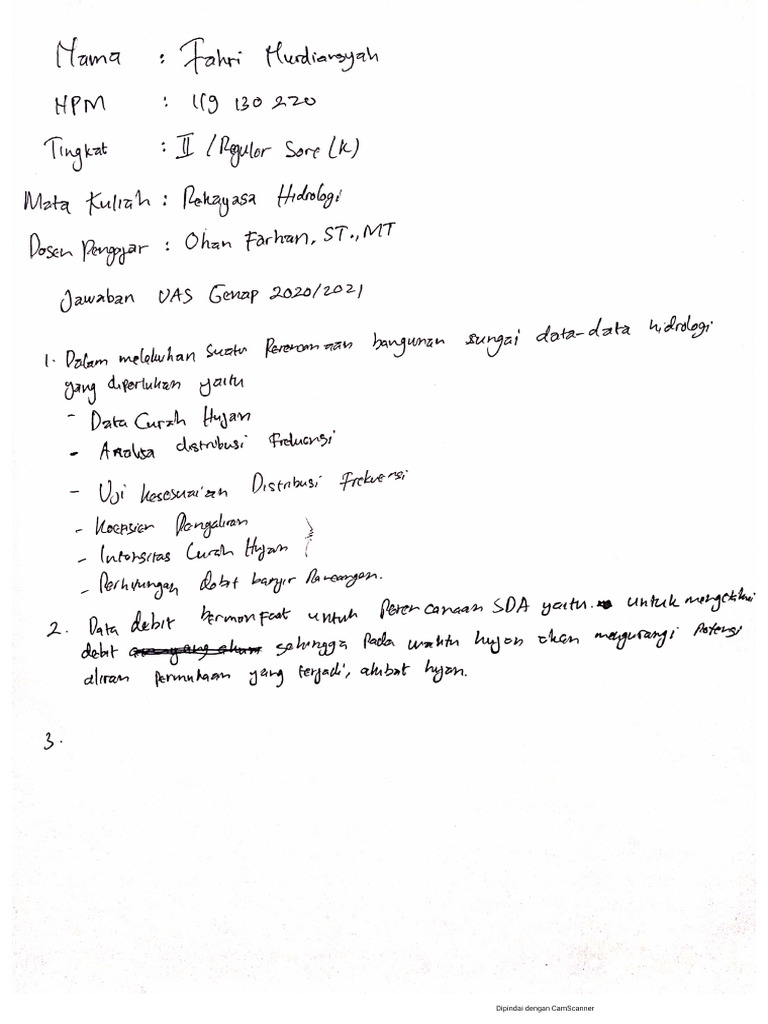 Nama : Fahri Nurdiansyah
NPM : 119 130 220
Tingkat : II / Reguler Sore (K)
Mata Kuliah : Rekayasa Hidrologi
Dosen Pengajar : Ohan Farhan, ST., MT
Jawaban UAS Genap 2020/2021
1. Dalam melakukan suatu Perencanaan bangunan sungai data-data hidrologi
yang diperlukan yaitu
- Data Curah Hujan
- Analisa distribusi Frekuensi
- Uji kesesuaian Distribusi Frekuensi
- Koefisien Pengaliran
- Intensitas Curah Hujan
- Perhitungan debit banjir Rancangan.
2. Data debit bermanfaat untuk Perencanaan SDA yaitu untuk mengetahui
debit sehingga pada waktu hujan akan mengurangi Potensi
aliran permukaan yang terjadi, akibat hujan.
3.
Dipindai dengan CamScanner